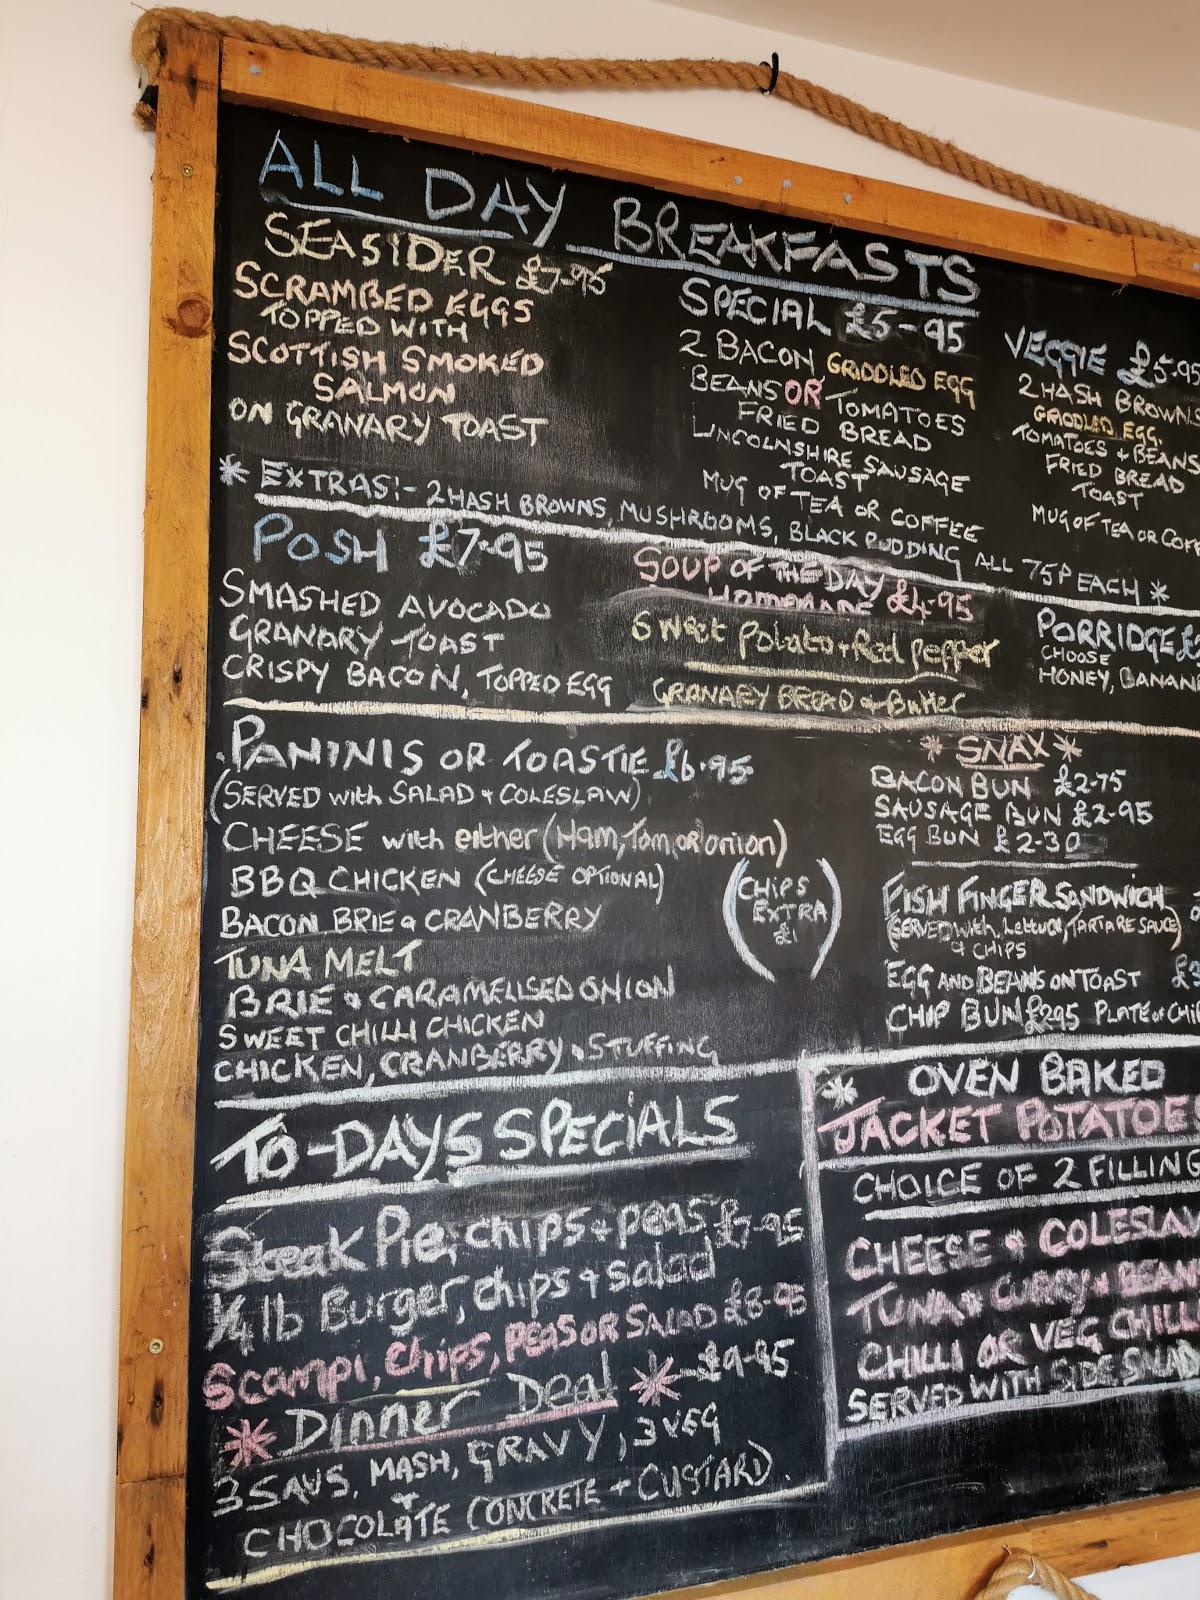 ALL DAY BREAKFASTS
SEASIDER £7.95
SCRAMBED EGGS
TOPPED WITH
SCOTTISH SMOKED
SALMON
ON GRANARY TOAST
SPECIAL £5-95
2 BACON GRIDDLED EGG
BEANS OR TOMATOES
FRIED BREAD
LINCOLNSHIRE SAUSAGE
TOAST
MUG OF TEA OR COFFEE
VEGGIE £5.95
2 HASH BROWNS
GRIDDLED EGG.
TOMATOES + BEANS
FRIED BREAD
TOAST
MUG OF TEA OR COFF
* EXTRAS:- 2 HASH BROWNS, MUSHROOMS, BLACK PUDDING ALL 75P EACH *
POSH £7.95
SMASHED AVOCADO
GRANARY TOAST
CRISPY BACON, TOPPED EGG
SOUP OF THE DAY £4.95
HOMEMADE
Sweet Potato + Red Pepper
GRANARY BREAD & Butter
PORRIDGE
CHOOSE
HONEY, BANAN
PANINIS OR TOASTIE £6.95
(SERVED with SALAD + COLESLAW)
CHEESE with either (Ham, Tom, or onion)
BBQ CHICKEN (CHEESE OPTIONAL)
BACON BRIE & CRANBERRY
TUNA MELT
BRIE & CARAMELISED ONION
SWEET CHILLI CHICKEN
CHICKEN, CRANBERRY & STUFFING
(CHIPS
EXTRA
£1)
* SNAX *
BACON BUN £2-75
SAUSAGE BUN £2-95
EGG BUN £2-30
FISH FINGER SANDWICH
(SERVED with Lettuce, TARTARE SAUCE)
& CHIPS
EGG AND BEANS ON TOAST
CHIP BUN £2.95 PLATE of CHI
TO-DAYS SPECIALS
Steak Pie, chips + peas £7-95
1/4 lb Burger, chips + salad
Scampi, Chips, PEAS OR SALAD £8-95
* Dinner Deal * £9-95
3 SAUS, MASH, GRAVY, 3 VEG
+
CHOCOLATE CONCRETE + CUSTARD.
* OVEN BAKED
JACKET POTATOE
CHOICE OF 2 FILLING
CHEESE & COLESLAW
TUNA & CURRY & BEAN
CHILLI OR VEG CHILLI
SERVED WITH SIDE SALAD